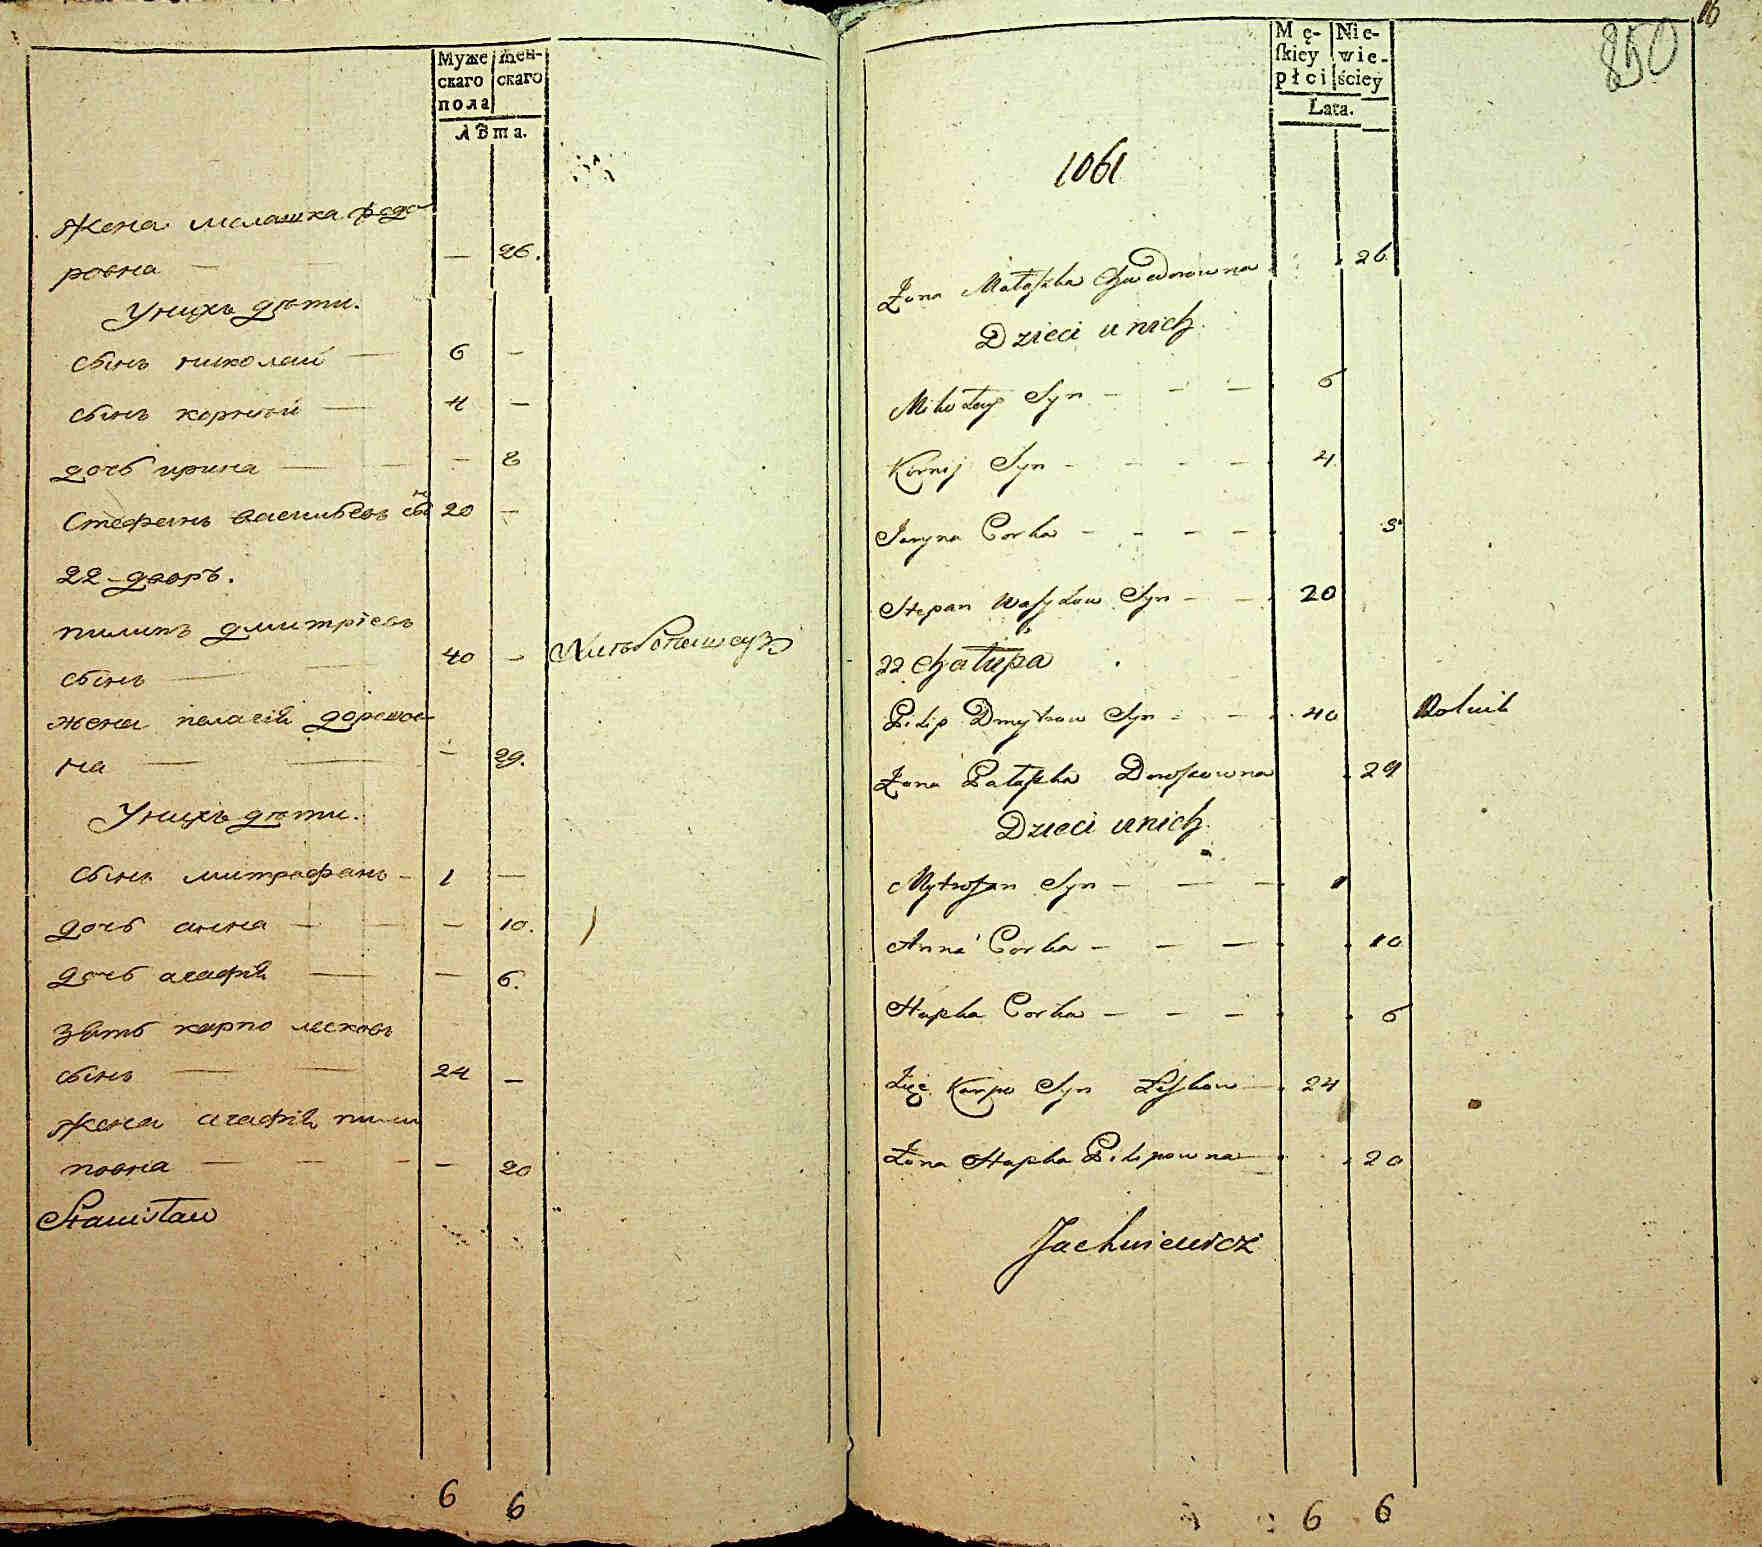 Муже
скаго
пола
жен-
скаго
лѢта.
Жена малашка Ѳедо
ровна — — 26.
Унихъ дѣти.
сынъ николай — 6 —
сынъ корній — 4 —
дочь ирина — — 8
Стефанъ васильевъ сынъ 20 —
22-дворъ.
пилипъ дмитріевъ
сынъ — 40 — Хлѣбопашецъ
жена палагія дорошов
на — — 29.
Унихъ дѣти.
сынъ митрофанъ — 1 —
дочь анна — — 10.
дочь агафія — — 6.
зять карпо лесковъ
сынъ — 24 —
Жена агафія пили
повна — — 20
Stanisław
6 6
16
850
Mę-
ſkiey
płci
Nie-
wie-
ściey
Lata.
1061
Żona Małaszka Chwedorowna 26
Dzieci u nich
Mikołay Syn — — 6
Kornij Syn — — — — 4
Jaryna Corka — — — — 8
Stepan Wasylow Syn — — 20
22 Chałupa
Pilip Dmytrow Syn — — 40 Rolnik
Żona Pałaszka Doroszowna 29
Dzieci u nich
Mytrofan Syn — — — 1
Anna Corka — — — 10
Hapka Corka — — — — 6
Zięć Karpo Syn Leszkow — 24
Żona Hapka Pilipowna — 20
Jachniewicz
6 6